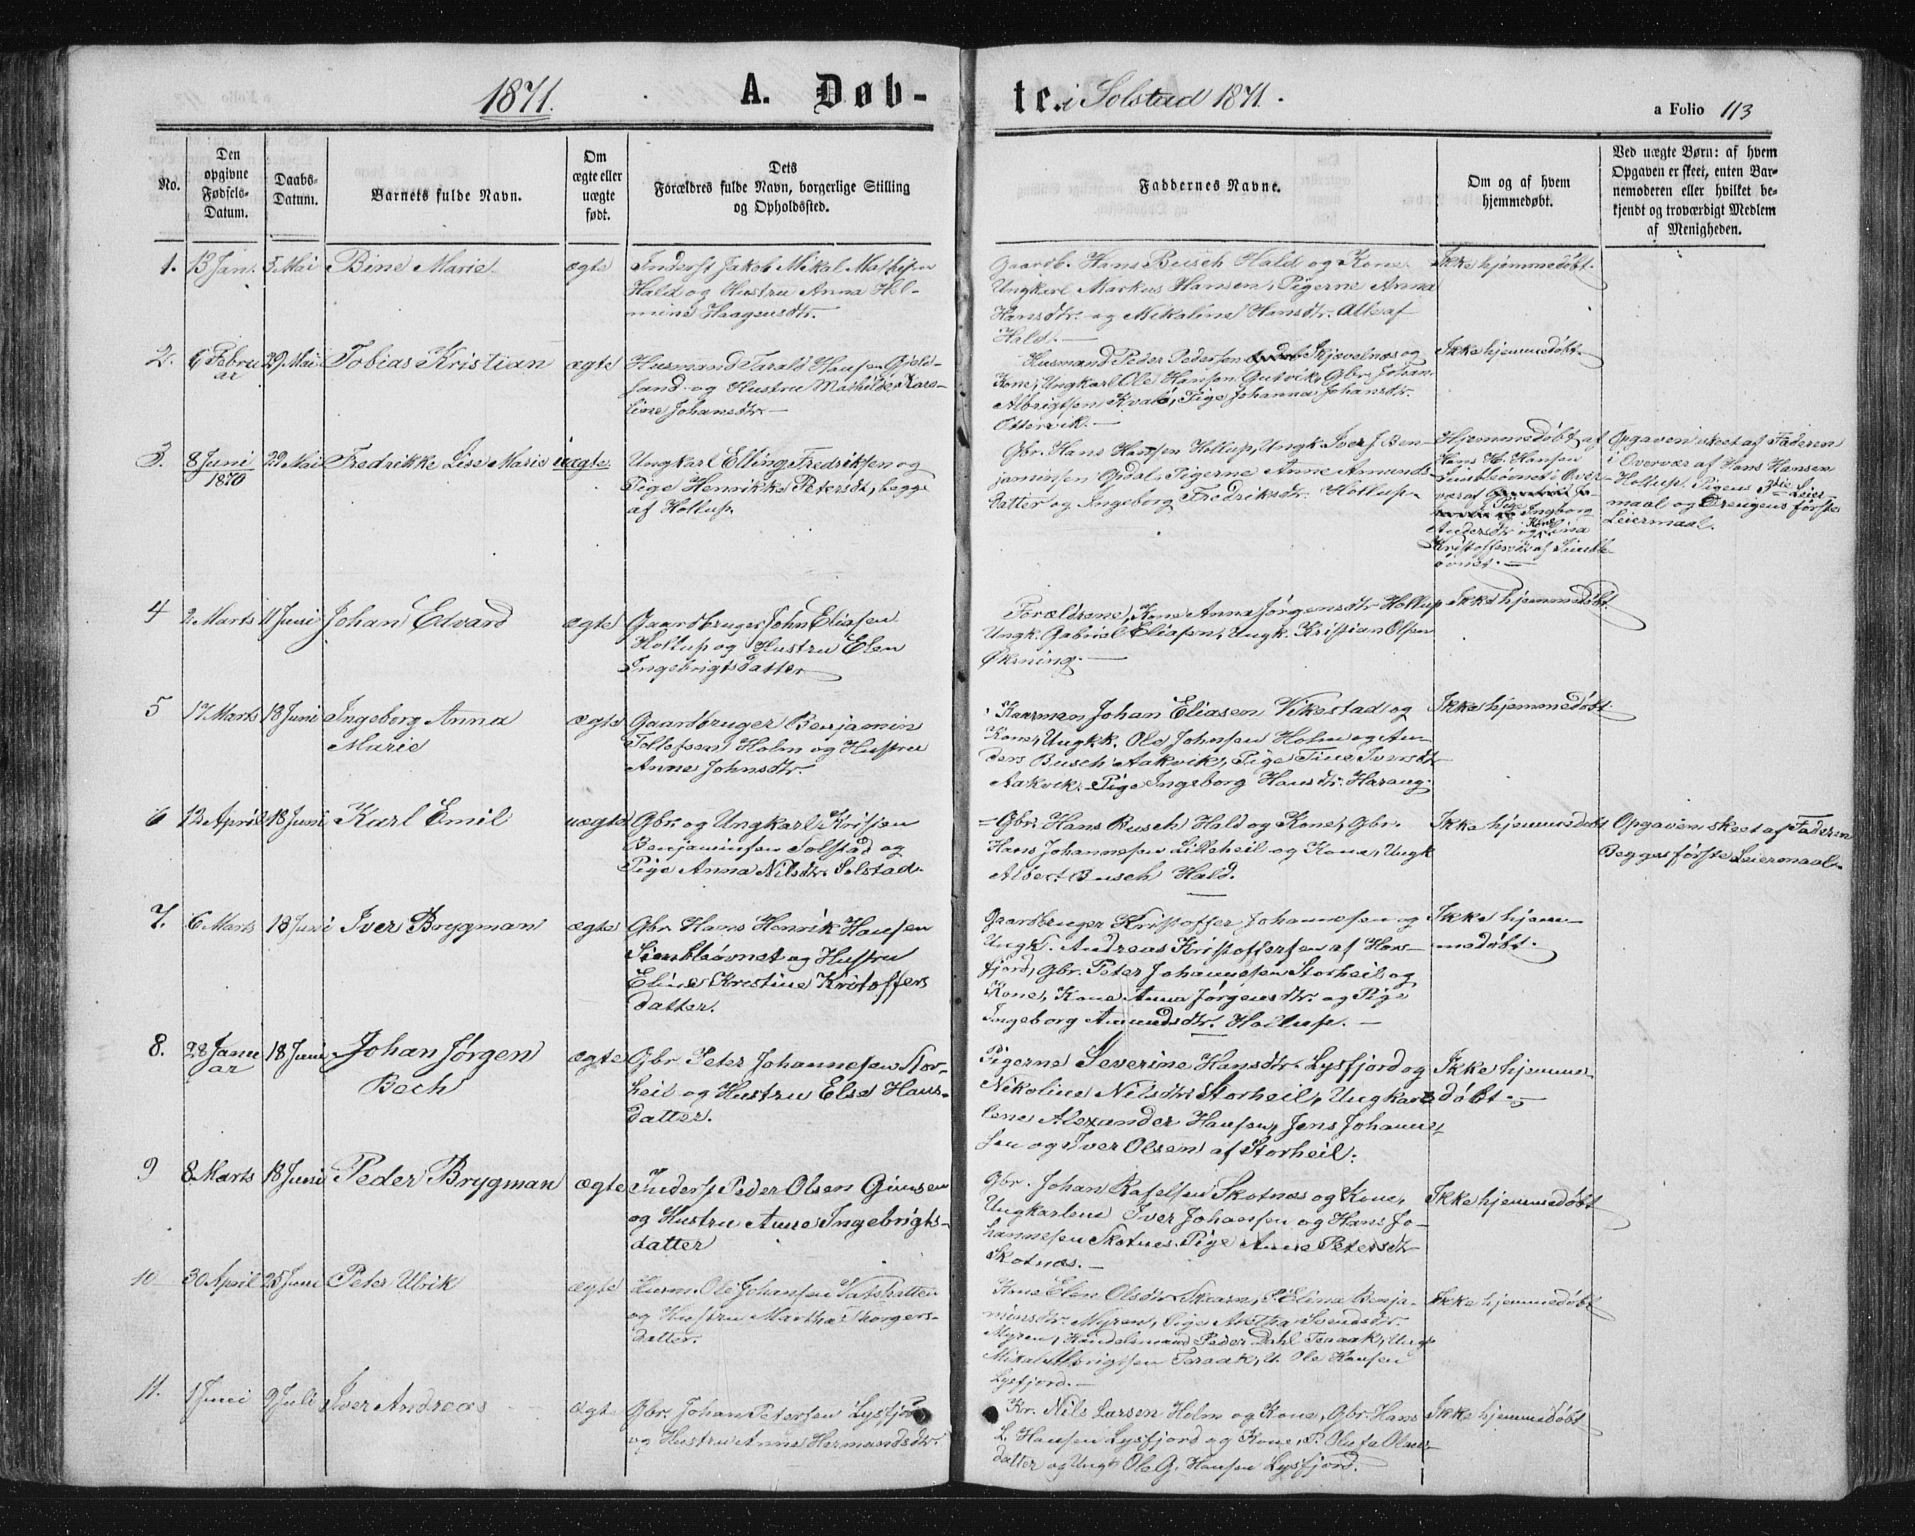 1871.
A. Døb-
te. i Solstad 1871.
a Folio 113
No.
Den opgivne Fødsels-Datum.
Daabs-Datum.
Barnets fulde Navn.
Om ægte eller uægte født.
Dets Forældres fulde Navn, borgerlige Stilling og Opholdssted.
Faddernes Navne.
Om og af hvem hjemmedøbt.
Ved uægte Børn: af hvem Opgaven er skeet, enten Barnemoderen eller hvilket bekjendt og troværdigt Medlem af Menigheden.
1. 13 Jan. 5 Mai Bine Marie ægte
Inderst Jakob Mikal Mathisen
Hald og Hustru Anna Hel-
mine Haagensdtr.
Gaardb. Hans Busch Hald og Kone
Ungkarl Markus Hansen, Pigerne Anna
Hansdtr. og Nikoline Hansdtr. Alle af
Hald.
Ikke hjemmedøbt.
2. 6 Febru
ar 29 Mai Tobias Kristian ægte
Husmand Tarald Hansen Gjeld-
sand og Hustru Mathilde Karo-
line Johansdtr.
Husmand Peder Pedersen Skjevelnæs og
Kone, Ungkarl Ole Hansen Gutvik, Gbr. Johan
Albrigtsen Kvalø, Pige Johanna Johansdtr.
Ottervik.
Ikke hjemmedøbt.
3. 8 Juni
1870 29 Mai Fredrikke Lise Marie uægte
Ungkarl Elling Fredriksen og
Pige Henrikke Petersdt, begge
af Hollup.
Gbr. Hans Hansen Hollup, Ungk. Iver J. Ben-
jaminsen Opdal, Pigerne Anne Amunds-
datter og Ingeborg Fredriksdtr. Hollup.
Hjemmedøbt af
Hans H. Hansen
i Over-
vær af
Pige Ingborg
Andersdtr og Kone Lina
Kristoffersdtr af
Opgaven skeet af Faderen
i Overvær af Hans Hansen
Hollup. Pigens 3die Leier-
maal og Drengens første
Leiermaal.
4 2 Marts 11 Juni Johan Edvard ægte
Gaardbruger John Eliasen
Hollup og Hustru Elen
Ingebrigtsdatter
Forældrene, Kone Anna Jørgensdtr Hollup
Ungk. Gabriel Eliasen, Ungk. Kristian Olsen
Øksning.
Ikke hjemmedøbt
5 17 Marts 18 Juni Ingeborg Anna
Marie ægte
Gaardbruger Benjamin
Tollefsen Holm og Hustru
Anne Johnsdtr.
Kaarmen Johan Eliasen Vikestad og
Kone, Ungkk. Ole Johnsen Holm og An-
ders Busch Aakvik, Pige Tine Iversdtr
Aakvik. Pige Ingeborg Hansdtr. Harang.
Ikke hjemmedøbt.
6 12 April 18 Juni Karl Emil uægte
Gbr. og Ungkarl Kristen
Benjaminsen Solstad og
Pige Anna Nilsdtr. Solstad.
Gbr. Hans Busch Hald og Kone, Gbr.
Hans Johannesen Lilleheil og Kone, Ungk
Albert Busch Hald.
Ikke hjemmedøbt
Opgaven skeet af Faderen
Begges første Leiermaal.
7. 6 Marts 18 Juni Iver Brygman ægte
Gbr. Hans Henrik Hansen
og Hustru
Eline Kristine Kristoffers
datter.
Gaardbruger Kristoffer Johannesen og
Ungk. Andreas Kristoffersen af Hors-
fjord, Gbr. Peter Johannesen Storheil og
Kone, Kone Anna Jørgensdtr. og Pige
Ingeborg Amundsdtr. Hollup.
Ikke hjem-
medøbt.
8. 28 Janu
ar 18 Juni Johan Jørgen
Bech ægte
Gbr Peter Johannesen Stor-
heil og Hustru Else Hans-
datter.
Pigerne Severine Hansdtr. Lysfjord og
Nikoline Nilsdtr. Storheil, Ungkar-
lene Alexander Hansen, Jens Johanne-
sen og Iver Olsen af Storheil.
Ikke hjemme-
døbt.
9 8 Marts 18 Juni Peder Brygman ægte
Inderst Peder Olsen Gimsen
og Hustru Anne Ingebrigts-
datter
Gbr. Johan Rafelsen Skotnæs og Kone,
Ungkarlene Iver Johansen og Hans Jo-
hannesen Skotnes. Pige Anne Petersdtr
Skotnæs.
Ikke hjemmedøbt
10 30 April 25 Juni Peter Ulrik ægte
Husm. Ole Johansen Vatshatten
og Hustru Martha Thorgers-
datter.
Kone Elen Olsdtr Skarn, P. Elina Benja-
minsdtr. Myren, Pige Svendsdtr.
Myren, Handelsmand Peder Dahl Teraak, Ung
Mikal Albrigtsen Teraak, U. Ole Hansen
Lysfjord.
Ikke hjemmedøbt
11. 1 Juni 9 Juli Iver Andreas ægt
Gbr. Johan Petersen Lysfjord
og Hustru Anne Hermandsdtr.
Kr. Nils Larsen Holm og Kone, Gbr. Hans
L. Hansen Lysfjord og Kone, P. Olufa Olaus-
datter og Ungk Ole G. Hansen Lysfjord.
Ikke hjemmedøbt